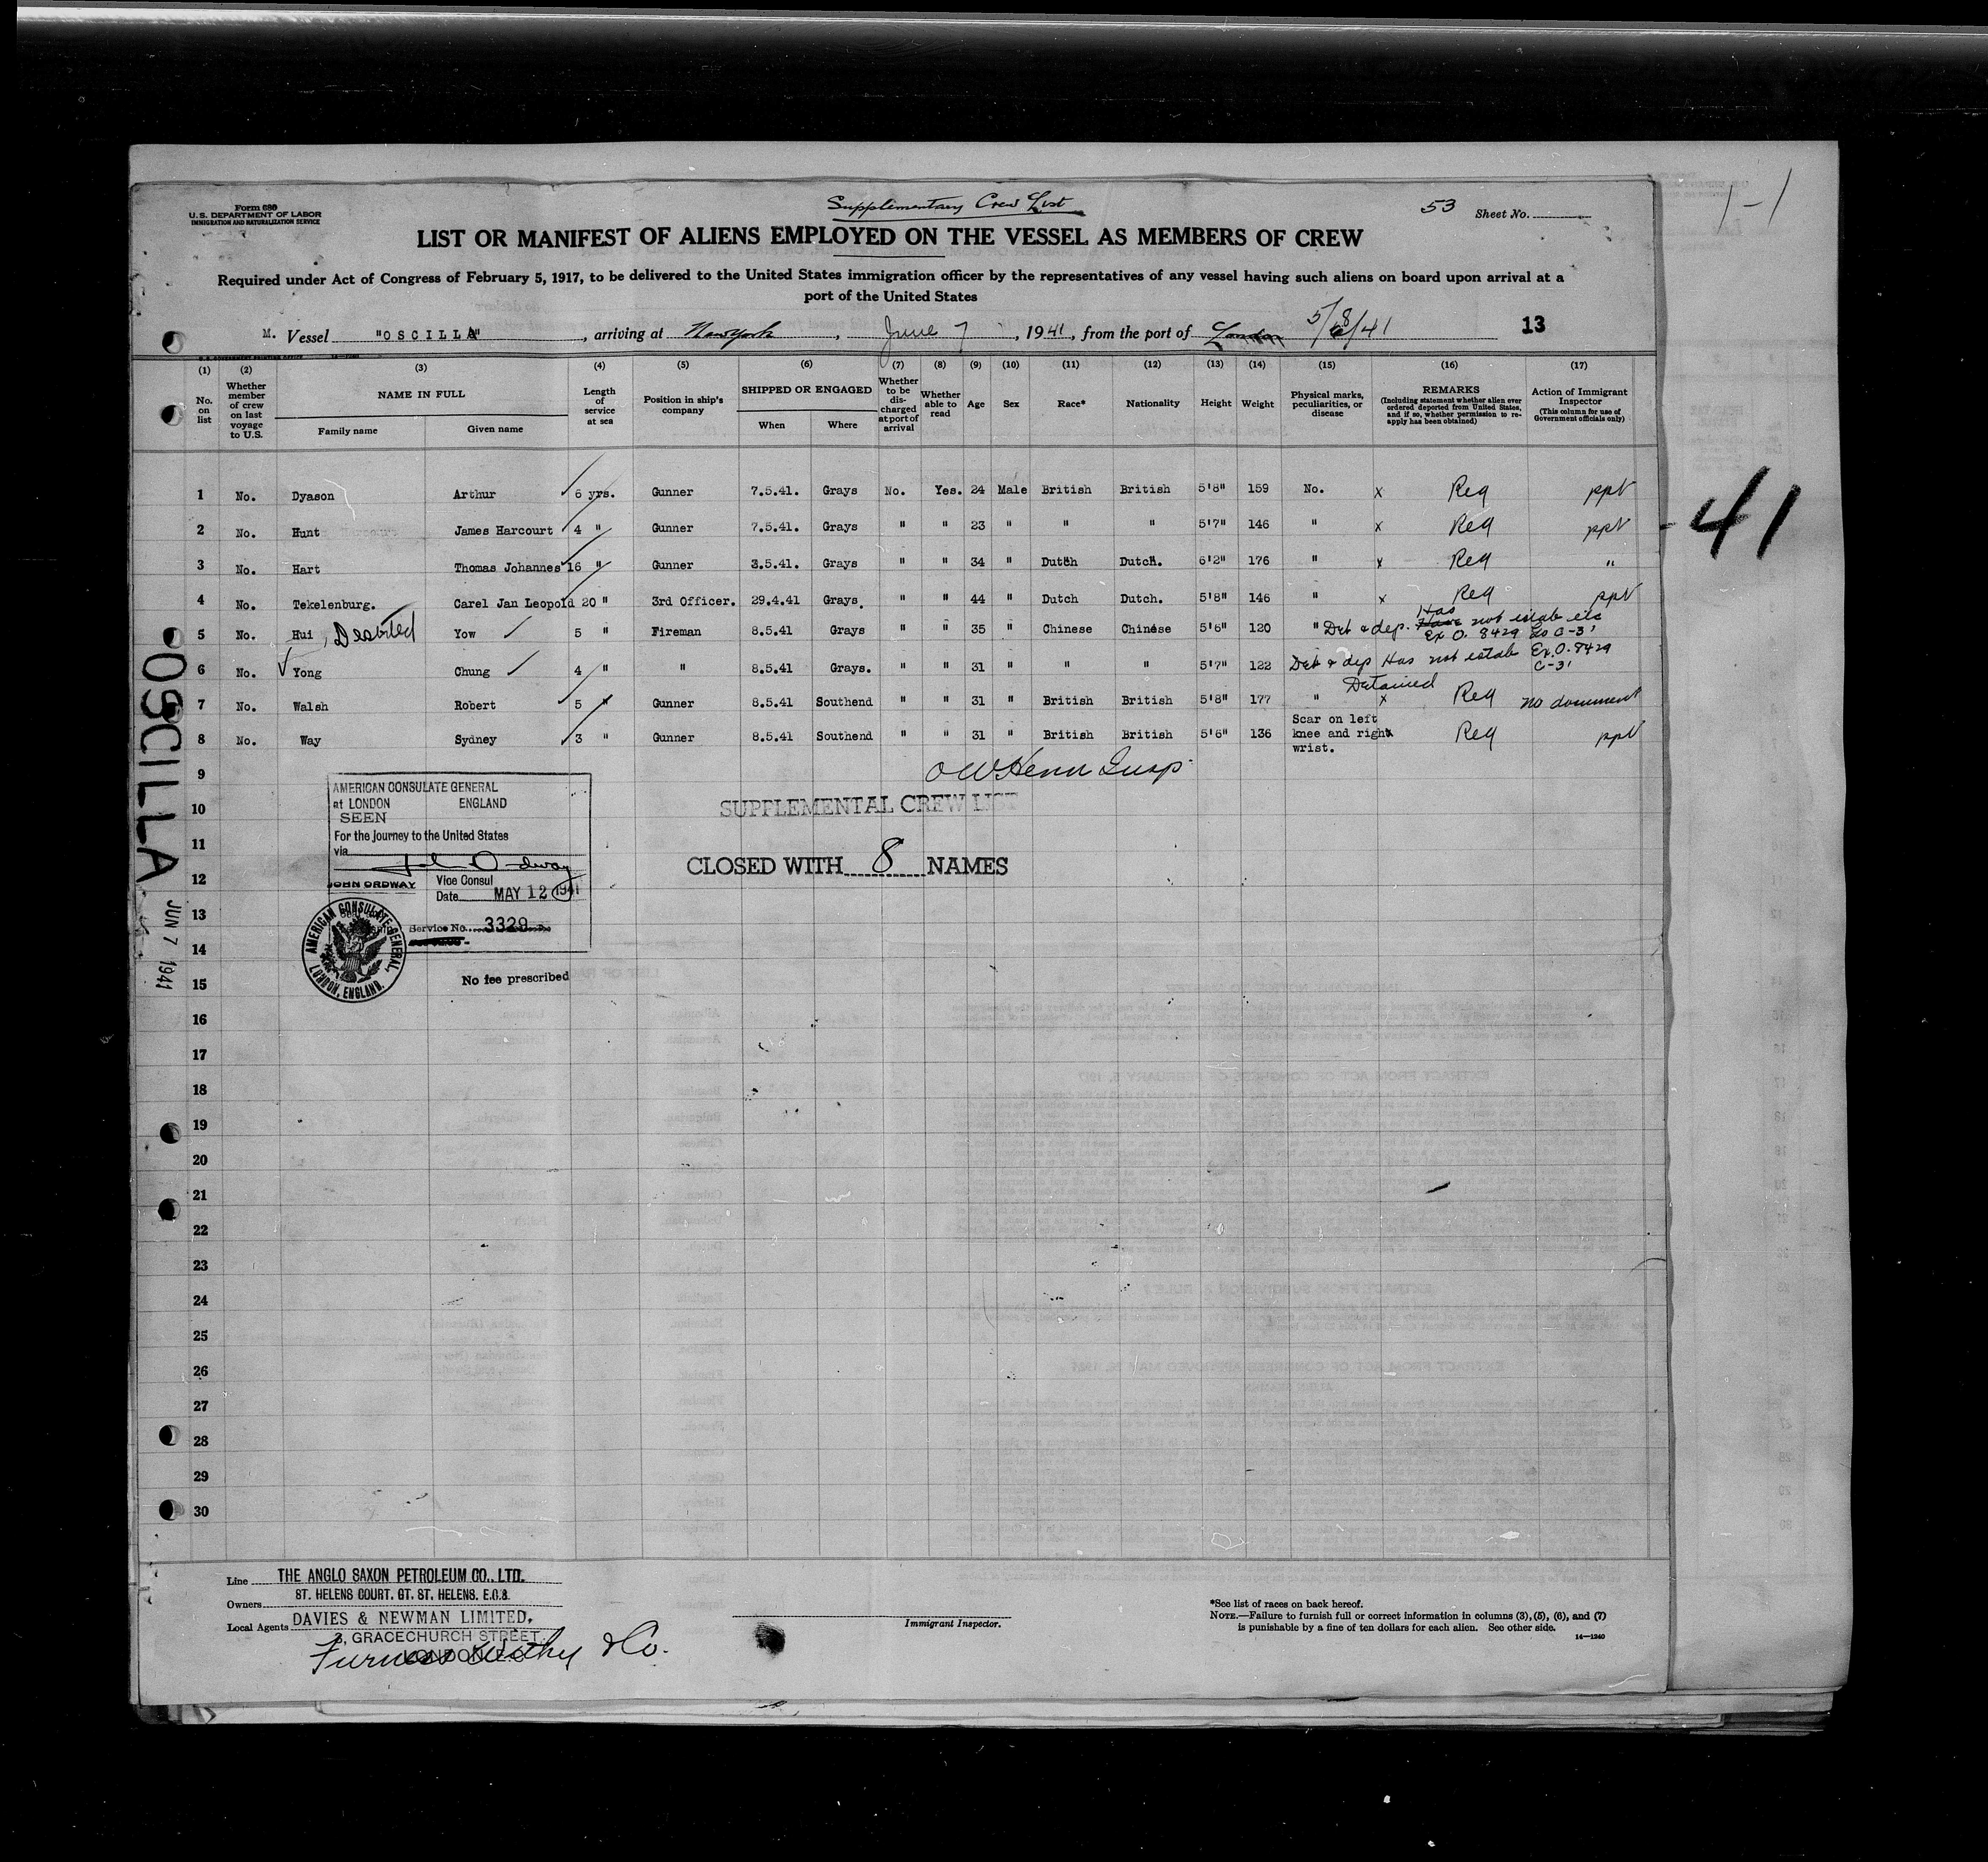 Form 680
U.S. DEPARTMENT OF LABOR
IMMIGRATION AND NATURALIZATION SERVICE
Supplementary Crew List
53 Sheet No.
LIST OR MANIFEST OF ALIENS EMPLOYED ON THE VESSEL AS MEMBERS OF CREW
Required under Act of Congress of February 5, 1917, to be delivered to the United States immigration officer by the representatives of any vessel having such aliens on board upon arrival at a
port of the United States
M. Vessel "OSCILLA", arriving at New York, June 7, 1941, from the port of London 5/8/41 13
(1) (2) (3) (4) (5) (6) (7) (8) (9) (10) (11) (12) (13) (14) (15) (16) (17)
No. on list
Whether member of crew on last voyage to U.S.
NAME IN FULL
Family name Given name
Length of service at sea
Position in ship's company
SHIPPED OR ENGAGED
When Where
Whether to be discharged at port of arrival
Whether able to read
Age
Sex
Race*
Nationality
Height
Weight
Physical marks, peculiarities, or disease
REMARKS
(Including statement whether alien ever ordered deported from United States, and if so, whether permission to reapply has been obtained)
Action of Immigrant Inspector
(This column for use of Government officials only)
1 No. Dyason Arthur 6 yrs. Gunner 7.5.41. Grays No. Yes. 24 Male British British 5'8" 159 No. x Req ppt
2 No. Hunt James Harcourt 4 " Gunner 7.5.41. Grays " " 23 " " " 5'7" 146 " x Req ppt
3 No. Hart Thomas Johannes 16 " Gunner 3.5.41. Grays " " 34 " Dutch Dutch. 6'2" 176 " x Req "
4 No. Tekelenburg. Carel Jan Leopold 20 " 3rd Officer. 29.4.41 Grays. " " 44 " Dutch Dutch. 5'8" 146 " x Req ppt
5 No. Hui, Deserted Yow 5 " Fireman 8.5.41 Grays " " 35 " Chinese Chinese 5'6" 120 " Det & dep. Has not estab
Ex O. 8429 C-3'
6 No. Yong Chung 4 " " 8.5.41 Grays. " " 31 " " " 5'7" 122 Det & dep Has not estab Ex.O.8429
C-3'
Detained
7 No. Walsh Robert 5 " Gunner 8.5.41 Southend " " 31 " British British 5'8" 177 " x Req no document
8 No. Way Sydney 3 " Gunner 8.5.41 Southend " " 31 " British British 5'6" 136 Scar on left knee and right wrist. x Req ppt
9
10
11
12
13
14
15
16
17
18
19
20
21
22
23
24
25
26
27
28
29
30
O W Henn Insp.
SUPPLEMENTAL CREW LIST
CLOSED WITH 8 NAMES
AMERICAN CONSULATE GENERAL
at LONDON ENGLAND
SEEN
For the journey to the United States
via
John Ordway
JOHN ORDWAY Vice Consul
Date MAY 12 1941
Service No. 3329
AMERICAN CONSULATE GENERAL, LONDON, ENGLAND.
No fee prescribed
OSCILLA
JUN 7 1941
41
1-1
Line THE ANGLO SAXON PETROLEUM CO., LTD.
Owners ST. HELENS COURT, GT. ST. HELENS, E.C.3.
Local Agents DAVIES & NEWMAN LIMITED,
GRACECHURCH STREET,
LONDON
Furness Withy & Co.
Immigrant Inspector.
*See list of races on back hereof.
NOTE.—Failure to furnish full or correct information in columns (3), (5), (6), and (7)
is punishable by a fine of ten dollars for each alien. See other side.
14—1240